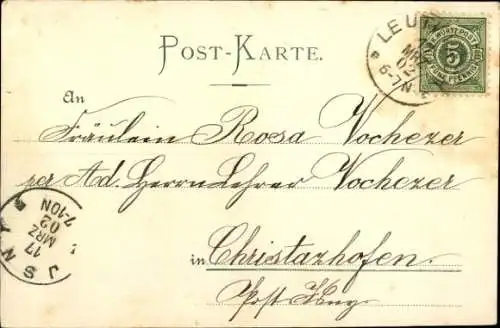 POST-KARTE.
LEUT
MRZ
02
6-7N
K. WÜRTT. POST
5
FÜNF PFENNIG
An
Fräulein Rosa Vochezer
per Ad. Herrn Lehrer Vochezer
in Christazhofen.
Post Isny
ISNY
17
MRZ
02
7-10N